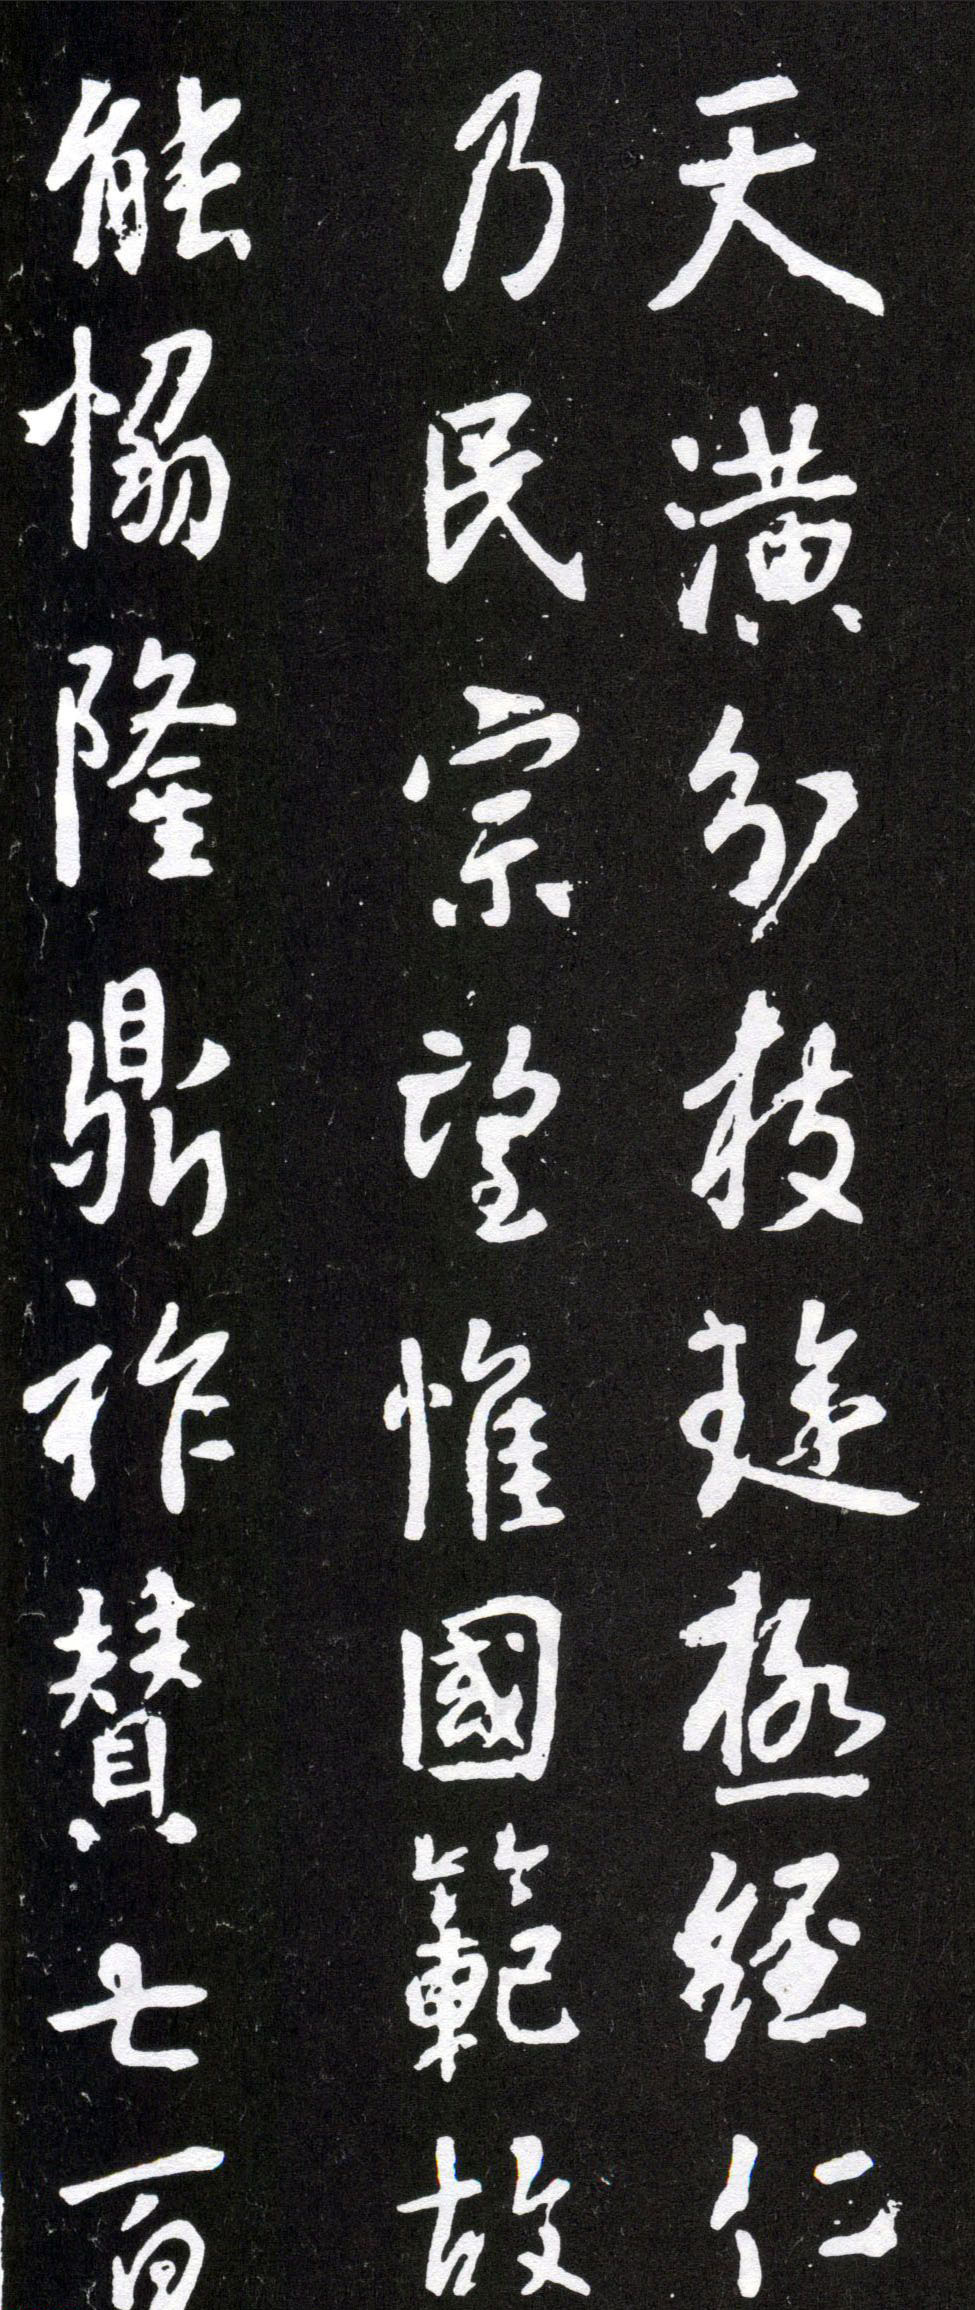 天潢分枝璇極經仁
乃民宗望惟國範故
能恊隆鼎祚賛七百